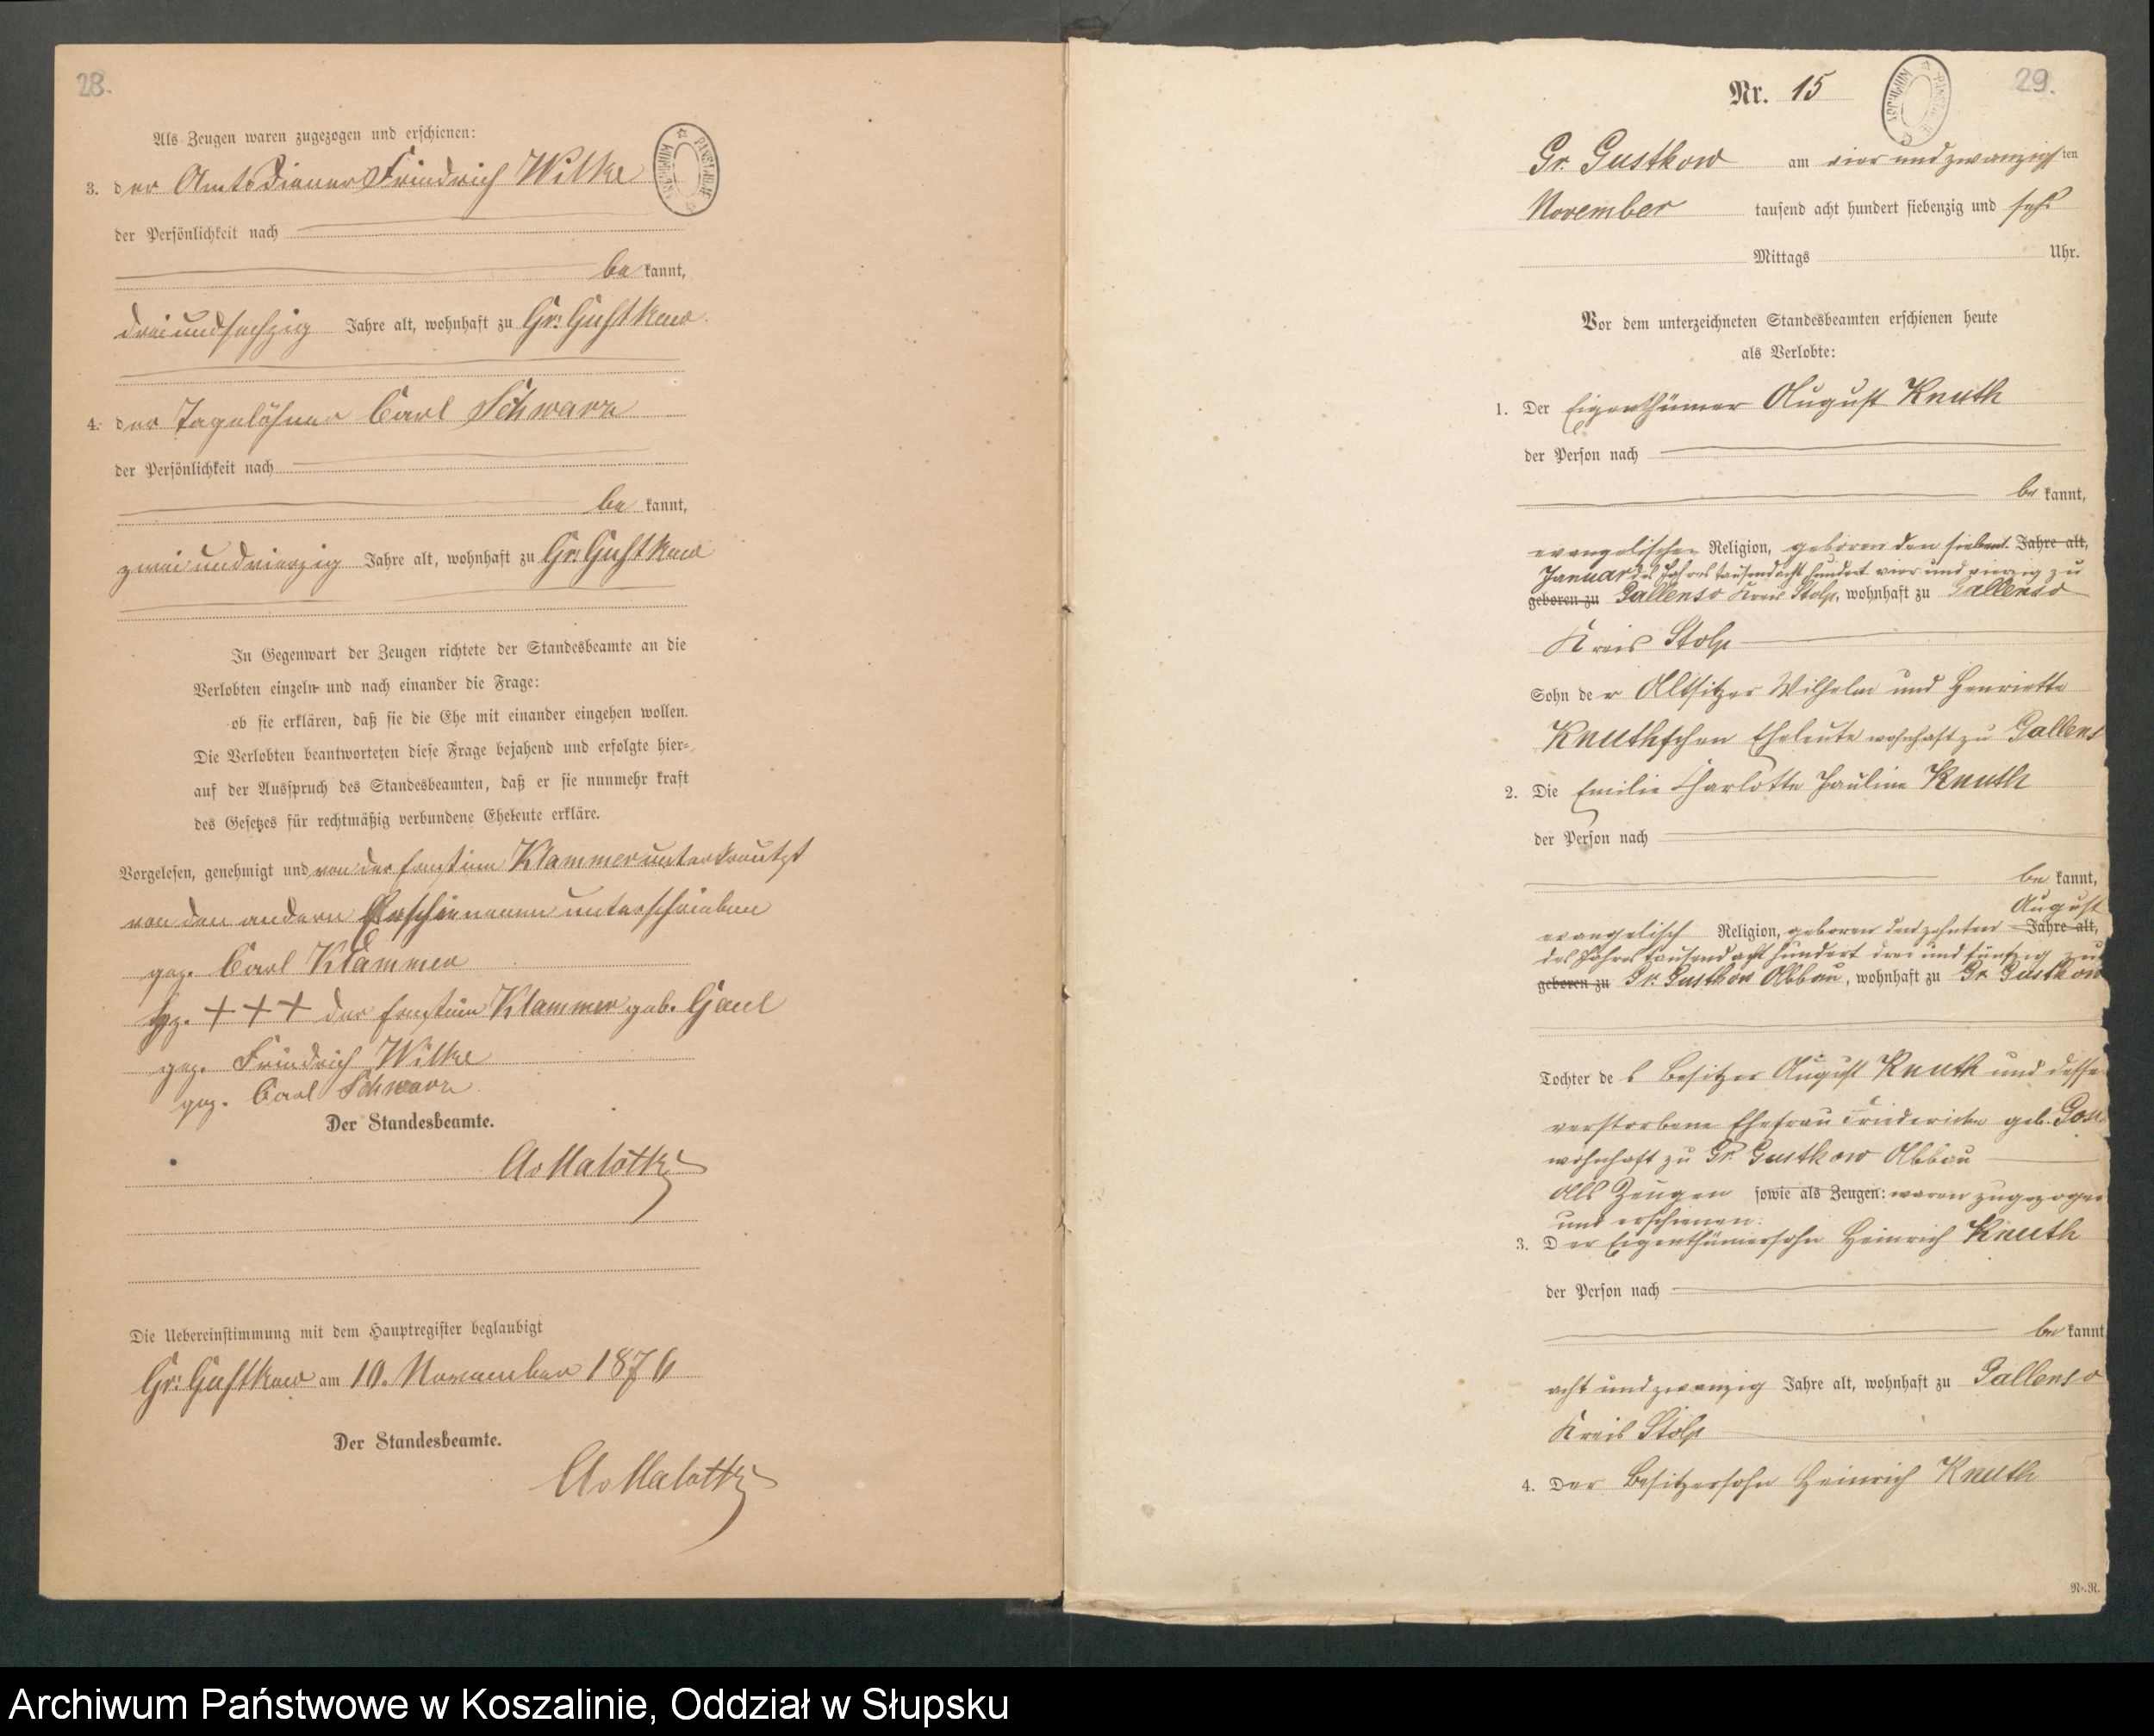 28.
Als Zeugen waren zugezogen und erschienen:
3. der Amtsdiener Friedrich Wilke
der Persönlichkeit nach
be kannt,
dreiundsechzig Jahre alt, wohnhaft zu Gr. Gustkow
4. der Tagelöhner Carl Schwarz
der Persönlichkeit nach
be kannt,
zweiundvierzig Jahre alt, wohnhaft zu Gr. Gustkow
In Gegenwart der Zeugen richtete der Standesbeamte an die
Verlobten einzeln und nach einander die Frage:
ob sie erklären, daß sie die Ehe mit einander eingehen wollen.
Die Verlobten beantworteten diese Frage bejahend und erfolgte hier-
auf der Ausspruch des Standesbeamten, daß er sie nunmehr kraft
des Gesetzes für rechtmäßig verbundene Eheleute erkläre.
Vorgelesen, genehmigt und von der Ernstine Klammer unterkreutzt
von den andern Erschienenen unterschrieben
gez. Carl Klammer
gz. +++ der Ernstine Klammer geb. Gaul
gez. Friedrich Wilke
gez. Carl Schwarz
Der Standesbeamte.
Die Uebereinstimmung mit dem Hauptregister beglaubigt
Gr. Gustkow am 10. November 1876
Der Standesbeamte.
29.
Nr. 15
Gr. Gustkow am vier und zwanzigsten
November tausend acht hundert siebenzig und sechs
Mittags Uhr.
Vor dem unterzeichneten Standesbeamten erschienen heute
als Verlobte:
1. Der Eigenthümer August Knuth
der Person nach
be kannt,
evangelischer Religion, geboren den siebent. Jahre alt,
Januar des Jahres tausend acht hundert vier und vierzig zu
geboren zu Gallenso Kreis Stolp, wohnhaft zu Gallenso
Kreis Stolp
Sohn de r Altsitzer Wilhelm und Henriette
Knuthschen Eheleute wohnhaft zu Gallens
2. Die Emilie Charlotte Pauline Knuth
der Person nach
be kannt,
August
evangelisch Religion, geboren den zehnten Jahre alt,
des Jahres tausend acht hundert drei und fünfzig zu
geboren zu Gr. Gustkow Abbau, wohnhaft zu Gr. Gustkow
Tochter de s Besitzer August Knuth und desse
verstorbene Ehefrau Friedericke geb.
wohnhaft zu Gr. Gustkow Abbau
Als Zeugen sowie als Zeugen: waren zugezogen
und erschienen:
3. Der Eigenthümersohn Heinrich Knuth
der Person nach
be kannt
acht und zwanzig Jahre alt, wohnhaft zu Gallenso
Kreis Stolp
4. Der Besitzersohn Heinrich Knuth
Archiwum Państwowe w Koszalinie, Oddział w Słupsku